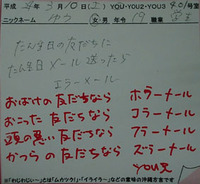 平成24年3月10日(土) YOU-YOU2-YOU3 401号室
ネーム ゆう 女・男 年令19 職業
たん生日の友だちに
たん生日メール送ったら
エラーメール
おばけの友だちなら ホラーメール
おこった友だちなら コラーメール
頭の悪い友だちなら フラーメール
かつらの友だちなら ズラーメール
"わじわじぃー"とは「ムカツク」・「イライラー」などの意味の沖縄方言です YOU愛